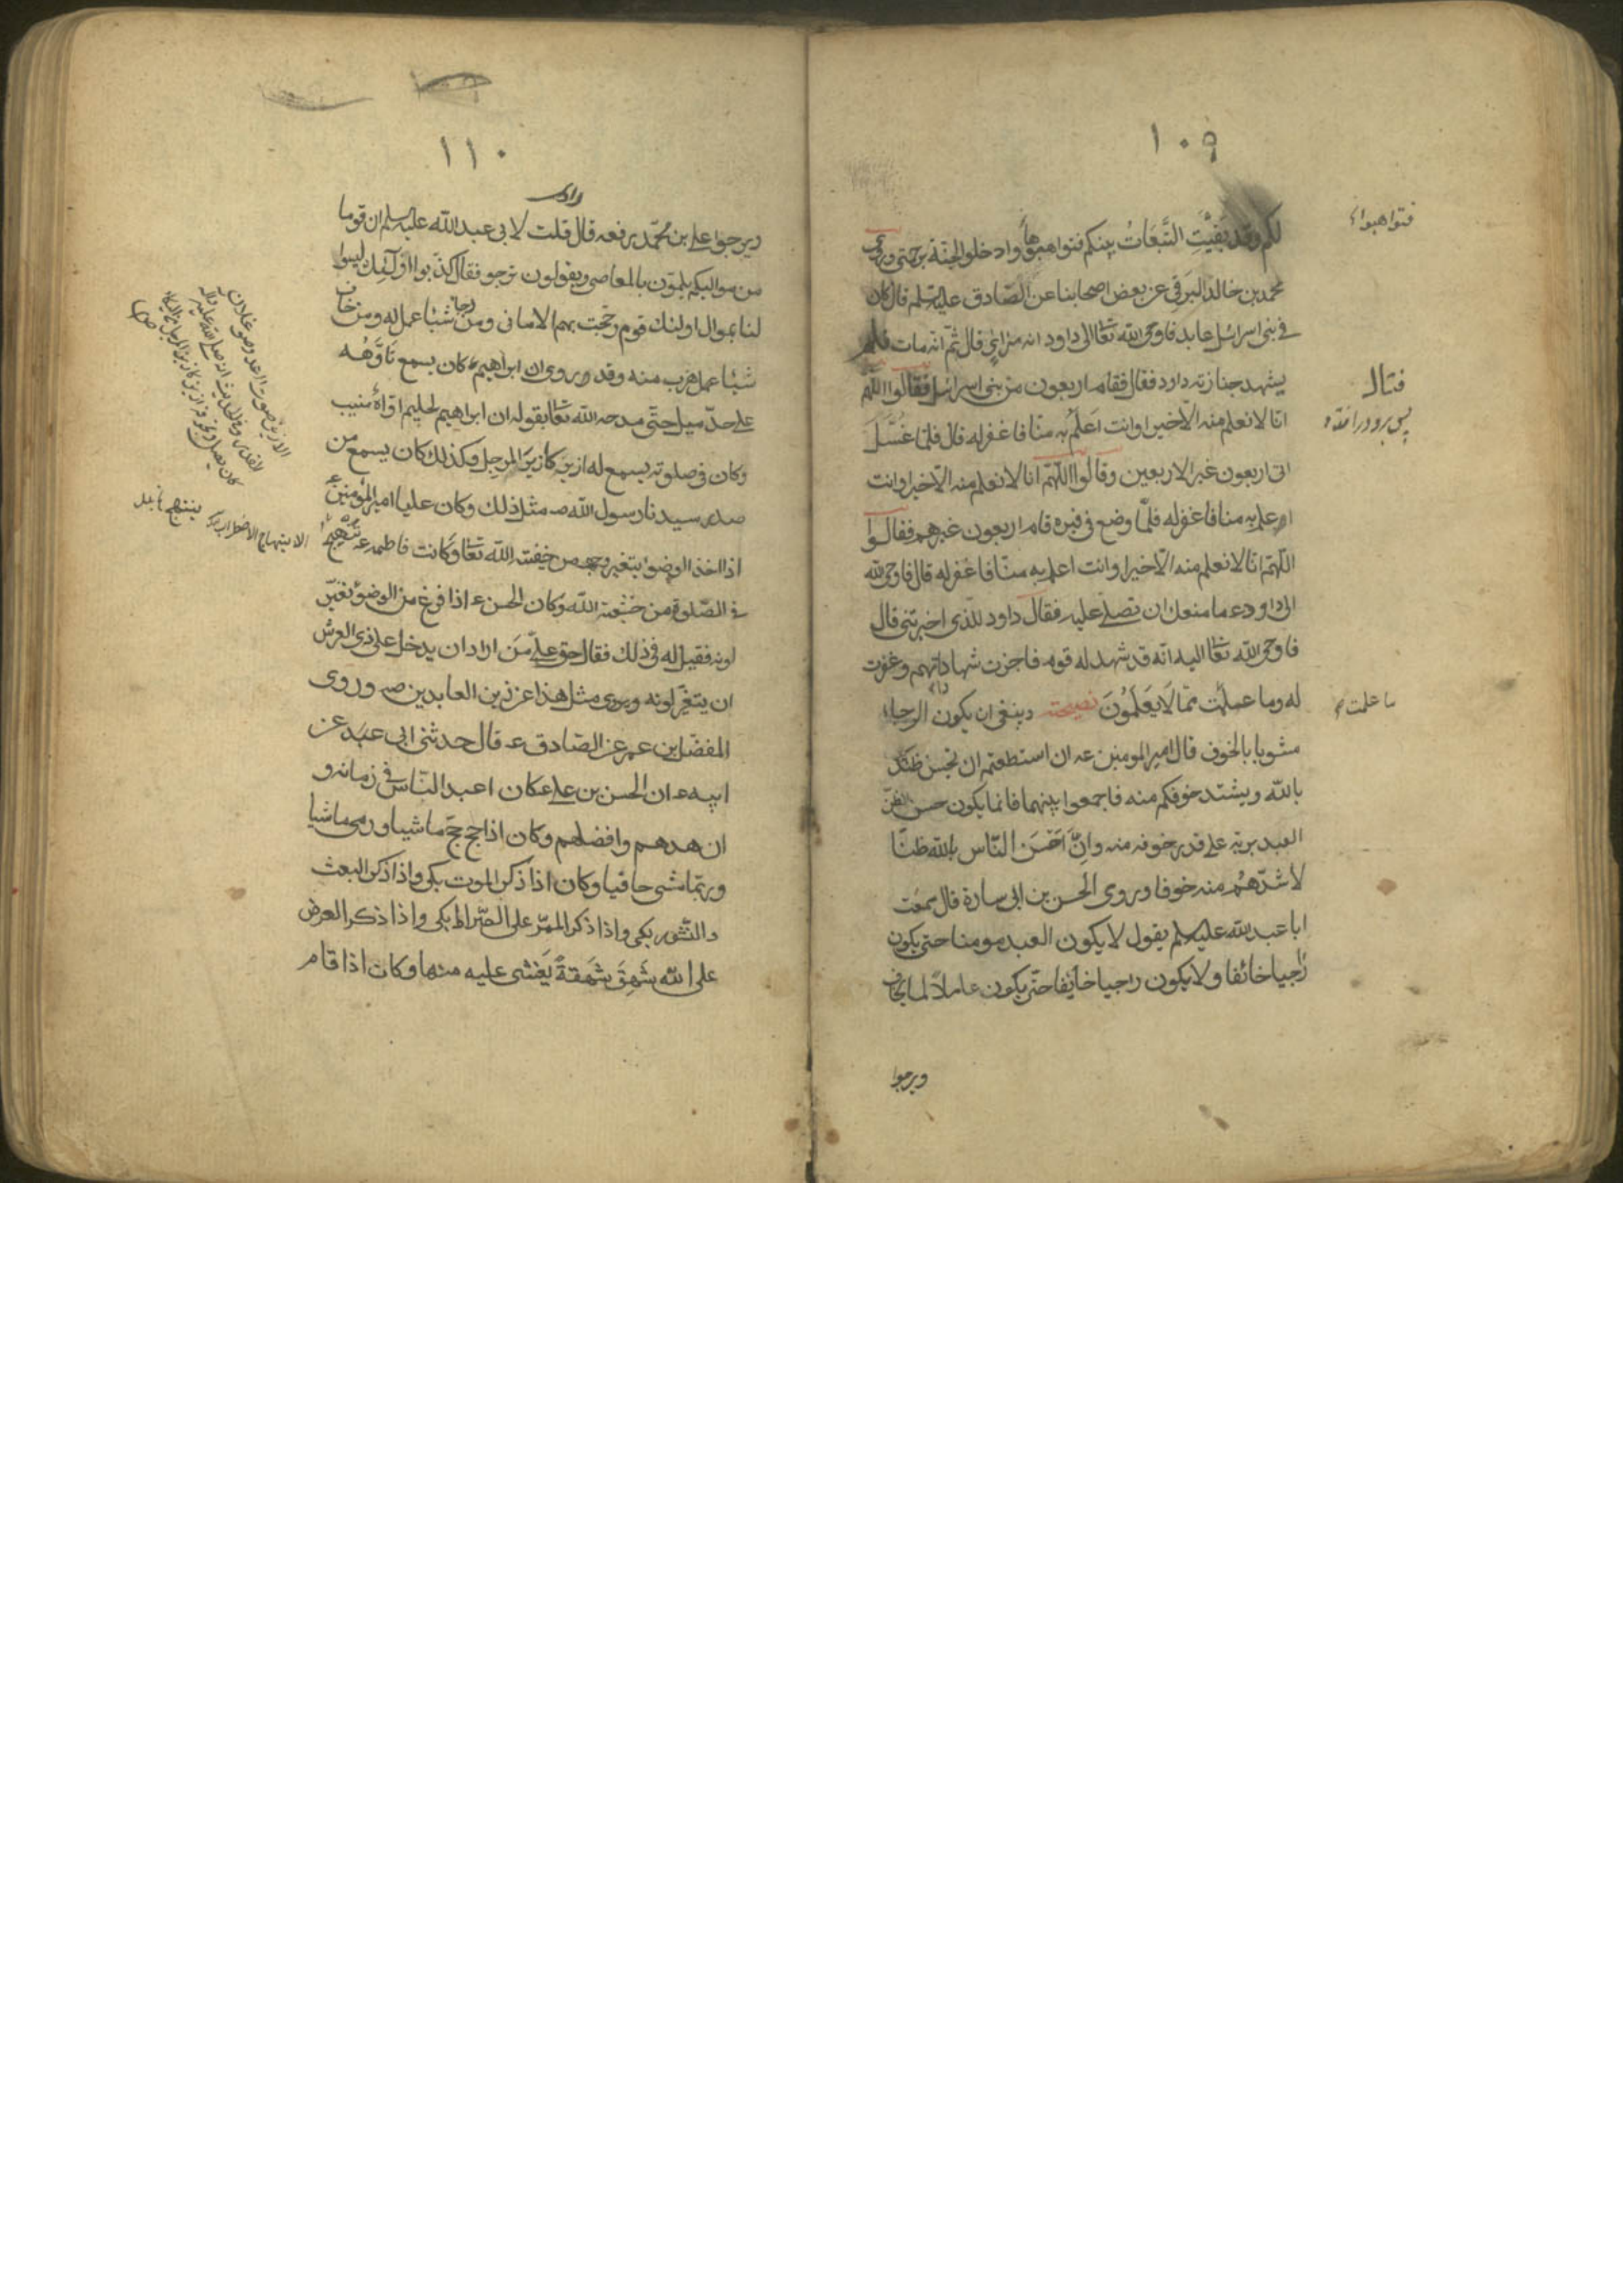 ١٠٩
لكم وقد بقيت التبعات بينكم فتواهبوها وادخلوا الجنة برحمتى وروى
محمد بن خالد البرقى عن بعض اصحابنا عن الصادق عليه السلم قال كان
فى بنى اسرائيل عابد فاوحى الله تعالى الى داود انه مرائى قال ثم انه مات فلم
يشهد جنازته داود فقال فقام اربعون من بنى اسرائيل فقالوا اللهم
انا لا نعلم منه الّا خيرا وانت اعلم به منا فاغفر له قال فلما غُسّل
اتى اربعون غير الاربعين وقالوا اللهم انا لا نعلم منه الا خيرا وانت
اعلم به منا فاغفر له فلما وضع فى قبره قام اربعون غيرهم فقالوا
اللهم انا لا نعلم منه الّا خيرا وانت اعلم به منا فاغفر له قال فاوحى الله
الى داود ع ما منعك ان تصلى عليه فقال داود للذى اخبرتنى قال
فاوحى الله تعالى اليه انه قد شهد له قوم فاجزت شهاداتهم وغفرت
له وما عملت مما لا يعلمون نصيحته وينبغى ان يكون الرجاء
مشوبا بالخوف قال امير المومنين عـ ان استطعتم ان تحسن ظنكم
بالله ويشتد خوفكم منه فاجمعوا بينهما فانما يكون حسن الظن
العبد بربه على قدر خوفه منه وانّ احسن الناس بالله ظنّا
لاشدّهم منه خوفا وروى الحسن بن ابى سارة قال سمعت
ابا عبد الله عليه السلم يقول لا يكون العبد مومنا حتى يكون
راجيا خائفا ولا يكون راجيا خائفا حتى يكون عاملاً لما يخاف
ويرجوا
فتواهبوا
فتال
ما علمت
١١٠
ويرجوا على بن محمد يرفعه قال قلت لابى عبد الله عليه السلم ان قوما
من مواليكم يلمّون بالمعاصى ويقولون نرجو فقال كذبوا اولئك ليسوا
لنا بموال اولئك قوم رجّحت بهم الامانى ومن رجا شيئا عمل له ومن خاف
شيئا عمل هرب منه وقد وروى ان ابراهيم ع كان يسمع تاوّهه
على حدّ ميل حتى مدحه الله تعالى بقوله ان ابراهيم لحليم اوّاه منيب
وكان فى صلوته يسمع له ازيز كازيز المرجل وكذلك كان يسمع من
صدر سيدنا رسول الله صـ مثل ذلك وكان عليا امير المؤمنين ع
اذا اخذ الوضوء يتغير وجهه من خيفت الله تعالى وكانت فاطمه عـ تنهج
فى الصّلوة من خشيته الله وكان الحسن ع اذا فرغ من الوضوء تغيّر
لونه فقيل له فى ذلك فقال حق على من اراد ان يدخل على ذى العرش
ان يتغير لونه ويروى مثل هذا عن زين العابدين صـ وروى
المفضل بن عمر عن الصادق عـ قال حدثنى ابى عبد عن
ابيه ع ان الحسن بن على ع كان اعبد الناس فى زمانه و
ازهدهم وافضلهم وكان اذا حج حجّ ماشيا ورمى ماشيا
وربّما مشى حافيا وكان اذا ذكر الموت بكى واذا ذكر البعث
والنشور بكى واذا ذكر الممرّ على الصّراط بكى واذا ذكر العرض
على الله شَهِقَ شَهقةً يَغشى عليه منها وكان اذا قام
الازيز صوت الرعد وصوت غليان
القدر وفى الحديث انه صلى الله عليه واله
كان يصلى ولجوفه ازيز كازيز المرجل من البكاء